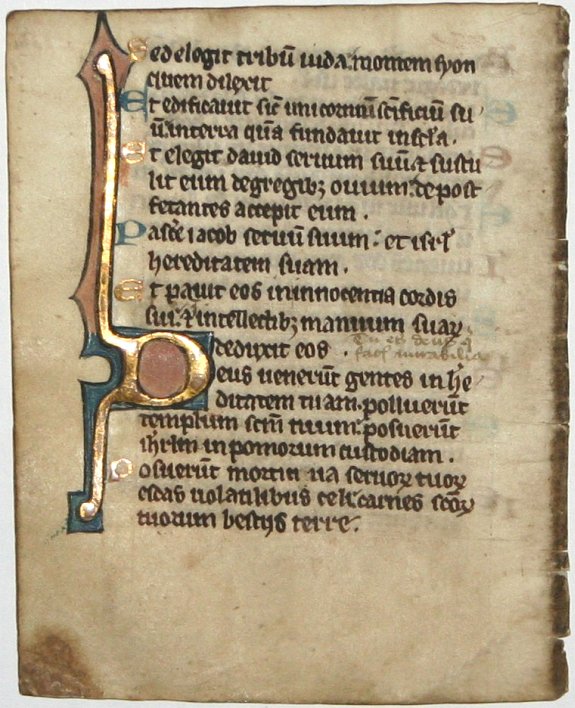 Sed elogit tribū iuda montem syon
quem dilexit
Et edificauit sic̄ unicorniū sc̄ificiū su
ū in terra quā fundauit in sc̄la.
Et elegit dauid seruum suū ⁊ sustu
lit eum degregibꝫ ouium: de post
fetantes accepit eum.
Pasc̄e iacob seruū suum: et isrl̄
hereditatem suam.
Et pauit eos in innocentia cordis
sui: ⁊ in intellectibꝫ manuum suaꝝ
dedixit eos.
Tu es deus q̄
facis mirabilia
Deus uenerūt gentes in h̄e
ditatem tuam: polluerūt
templum scm̄ tuum: posuerūt
ihrlm̄ in pomorum custodiam.
Posuerūt morticina seruoꝝ tuoꝝ
escas uolatilibus celi: carnes scōꝝ
tuorum bestijs terre.